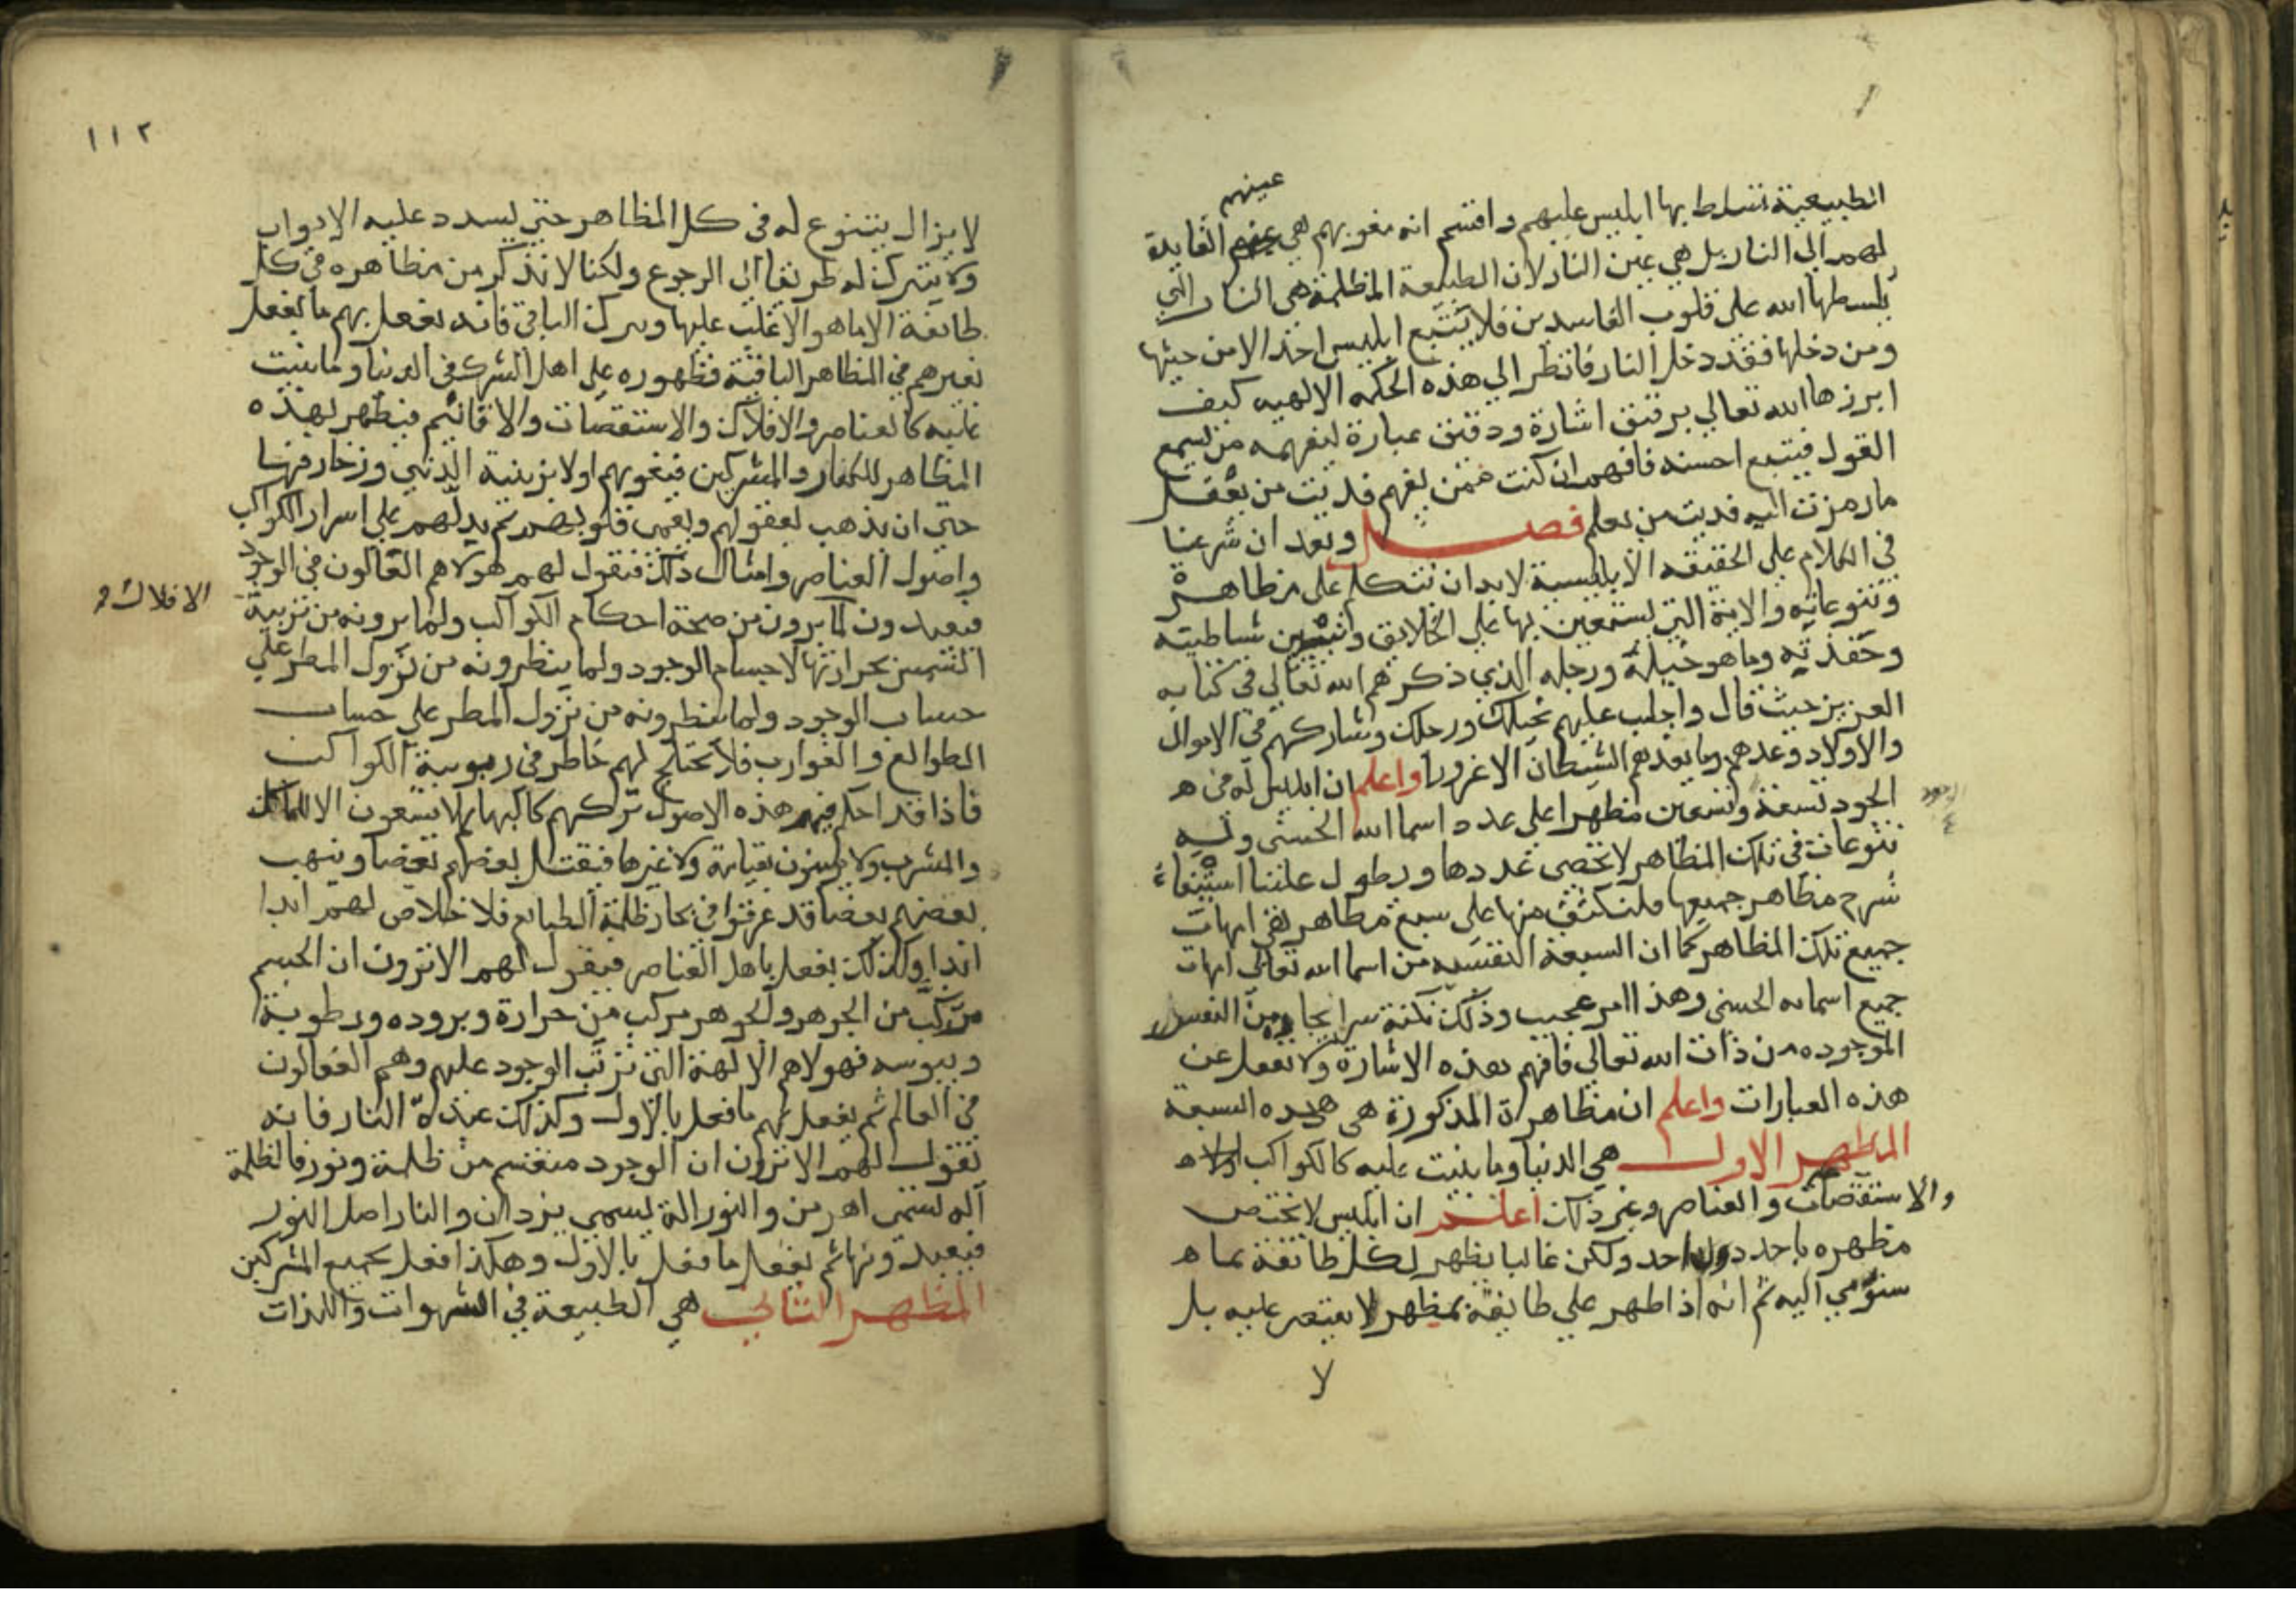 عينهم
الطبيعية تسلط بها ابليس عليهم واقسم انه مغويهم هي عينهم القايدة
لهم الي النار بل هي عين النار لان الطبيعة المظلمة هي النار التي
يسلطها الله على قلوب الفاسدين فلا يتبع ابليس احدا الا من حيثها
ومن دخلها فقد دخل النار فانظر الي هذه الحكمه الالهيه كيف
ابرزها الله تعالي برقيق اشارة ودقيق عبارة ليفهمه من يسمع
القول فيتبع احسنه فافهم ان كنت ممن يفهم فديت من يعقل
ما رمزت اليه فديت من يعلم فصل وبعد ان شرعنا
في الكلام علي الحقيقه الابليسية لابد ان نتكلم على مظاهره
وتنوعاته والايته التي يستعين بها علي الخلايق وتبيين شياطينه
وحفدته وما هو خيله ورجله الذي ذكرهم الله تعالي في كتابه
العزيز حيث قال واجلب عليهم بخيلك ورجلك وشاركهم في الاموال
والاولاد وعدهم وما يعدهم الشيطان الا غرورا واعلم ان ابليس له في
الوجود تسعة وتسعين مظهرا علي عدد اسما الله الحسنى وله
تنوعات في تلك المظاهر لا تحصى عددها ويطول علينا استيفاء
شرح مظاهر جميعها فلنكتف منها على سبع مظاهر هي امهات
جميع تلك المظاهر كما ان السبعة النفسيه من اسما الله تعالي امهات
جميع اسمايه الحسنى وهذا امر عجيب وذلك نكتة سر ايجاده من النفس
الموجوده من ذات الله تعالي فافهم هذه الاشارة ولا تغفل عن
هذه العبارات واعلم ان مظاهره المذكورة هي هذه السبعة
المظهر الاول هي الدنيا وما بنيت عليه كالكواكب
والاستقصات والعناصر وغير ذلك اعلم ان ابليس لا يختص
مظهره باحد دون احد ولكن غالبا يظهر لكل طائفة بما
سنؤمي اليه ثم انه اذا ظهر علي طايفة بمظهر لا يقتصر عليه بل
لا
١١٢
لا يزال يتنوع له في كل المظاهر حتى يسدد عليه الابواب
ولا يترك له طريقا الي الرجوع ولكنا لا نذكر من مظاهره في كل
طايفة الا ما هو الاغلب عليها ونترك الباقي فانه يفعل بهم ما يفعل
بغيرهم في المظاهر الباقية فظهوره على اهل الشرك في الدنيا وما بنيت
عليه كالعناصر والافلاك والاستقصات والاقاليم فيظهر بهذه
المظاهر للكفار والمشركين فيغويهم اولا بزينة الدني وزخارفها
حتى ان يذهب بعقولهم ويعمى قلوبهم ثم يدلهم على اسرار الكواكب
واصول العناصر وامثال ذلك فيقول لهم هولا هم الفعالون في الوجود
فيعبدون الافلاك لما يرون من صحة احكام الكواكب ولما يرونه من تربية
الشمس بحرارتها لاجسام الوجود ولما ينظرونه من نزول المطر علي
حساب الوجود ولما ينظرونه من نزول المطر علي حساب
الطوالع والغوارب فلا يختلج لهم خاطر في ربوبية الكواكب
فاذا قد احكم فيهم هذه الاصول تركهم كالبهايم لا يسعون الا للماكل
والمشرب ولا يؤمنون بقيامة ولا غيرها فيقتل بعضهم بعضا وينهب
بعضهم بعضا قد غرقوا في بحار ظلمة الطبايع فلا خلاص لهم ابدا
ابدا وكذلك يفعل باهل العناصر فيقول لهم الا ترون ان الجسم
مركب من الجوهر والجوهر مركب من حرارة وبروده ورطوبة
ويبوسه فهولا هم الالهة التي ترتب الوجود عليهم وهم الفعالون
في العالم ثم يفعل بهم ما فعل بالاول وكذلك عبدة النار فانه
يقول لهم الا ترون ان الوجود منقسم من ظلمة ونور فالظلمة
آله تسمى اهرمن والنور اله يسمي يزدان والنار اصل النور
فيعبدونها ثم يفعل ما فعل بالاول وهكذا فعل بجميع المشركين
المظهر الثاني هي الطبيعة في الشهوات واللذات